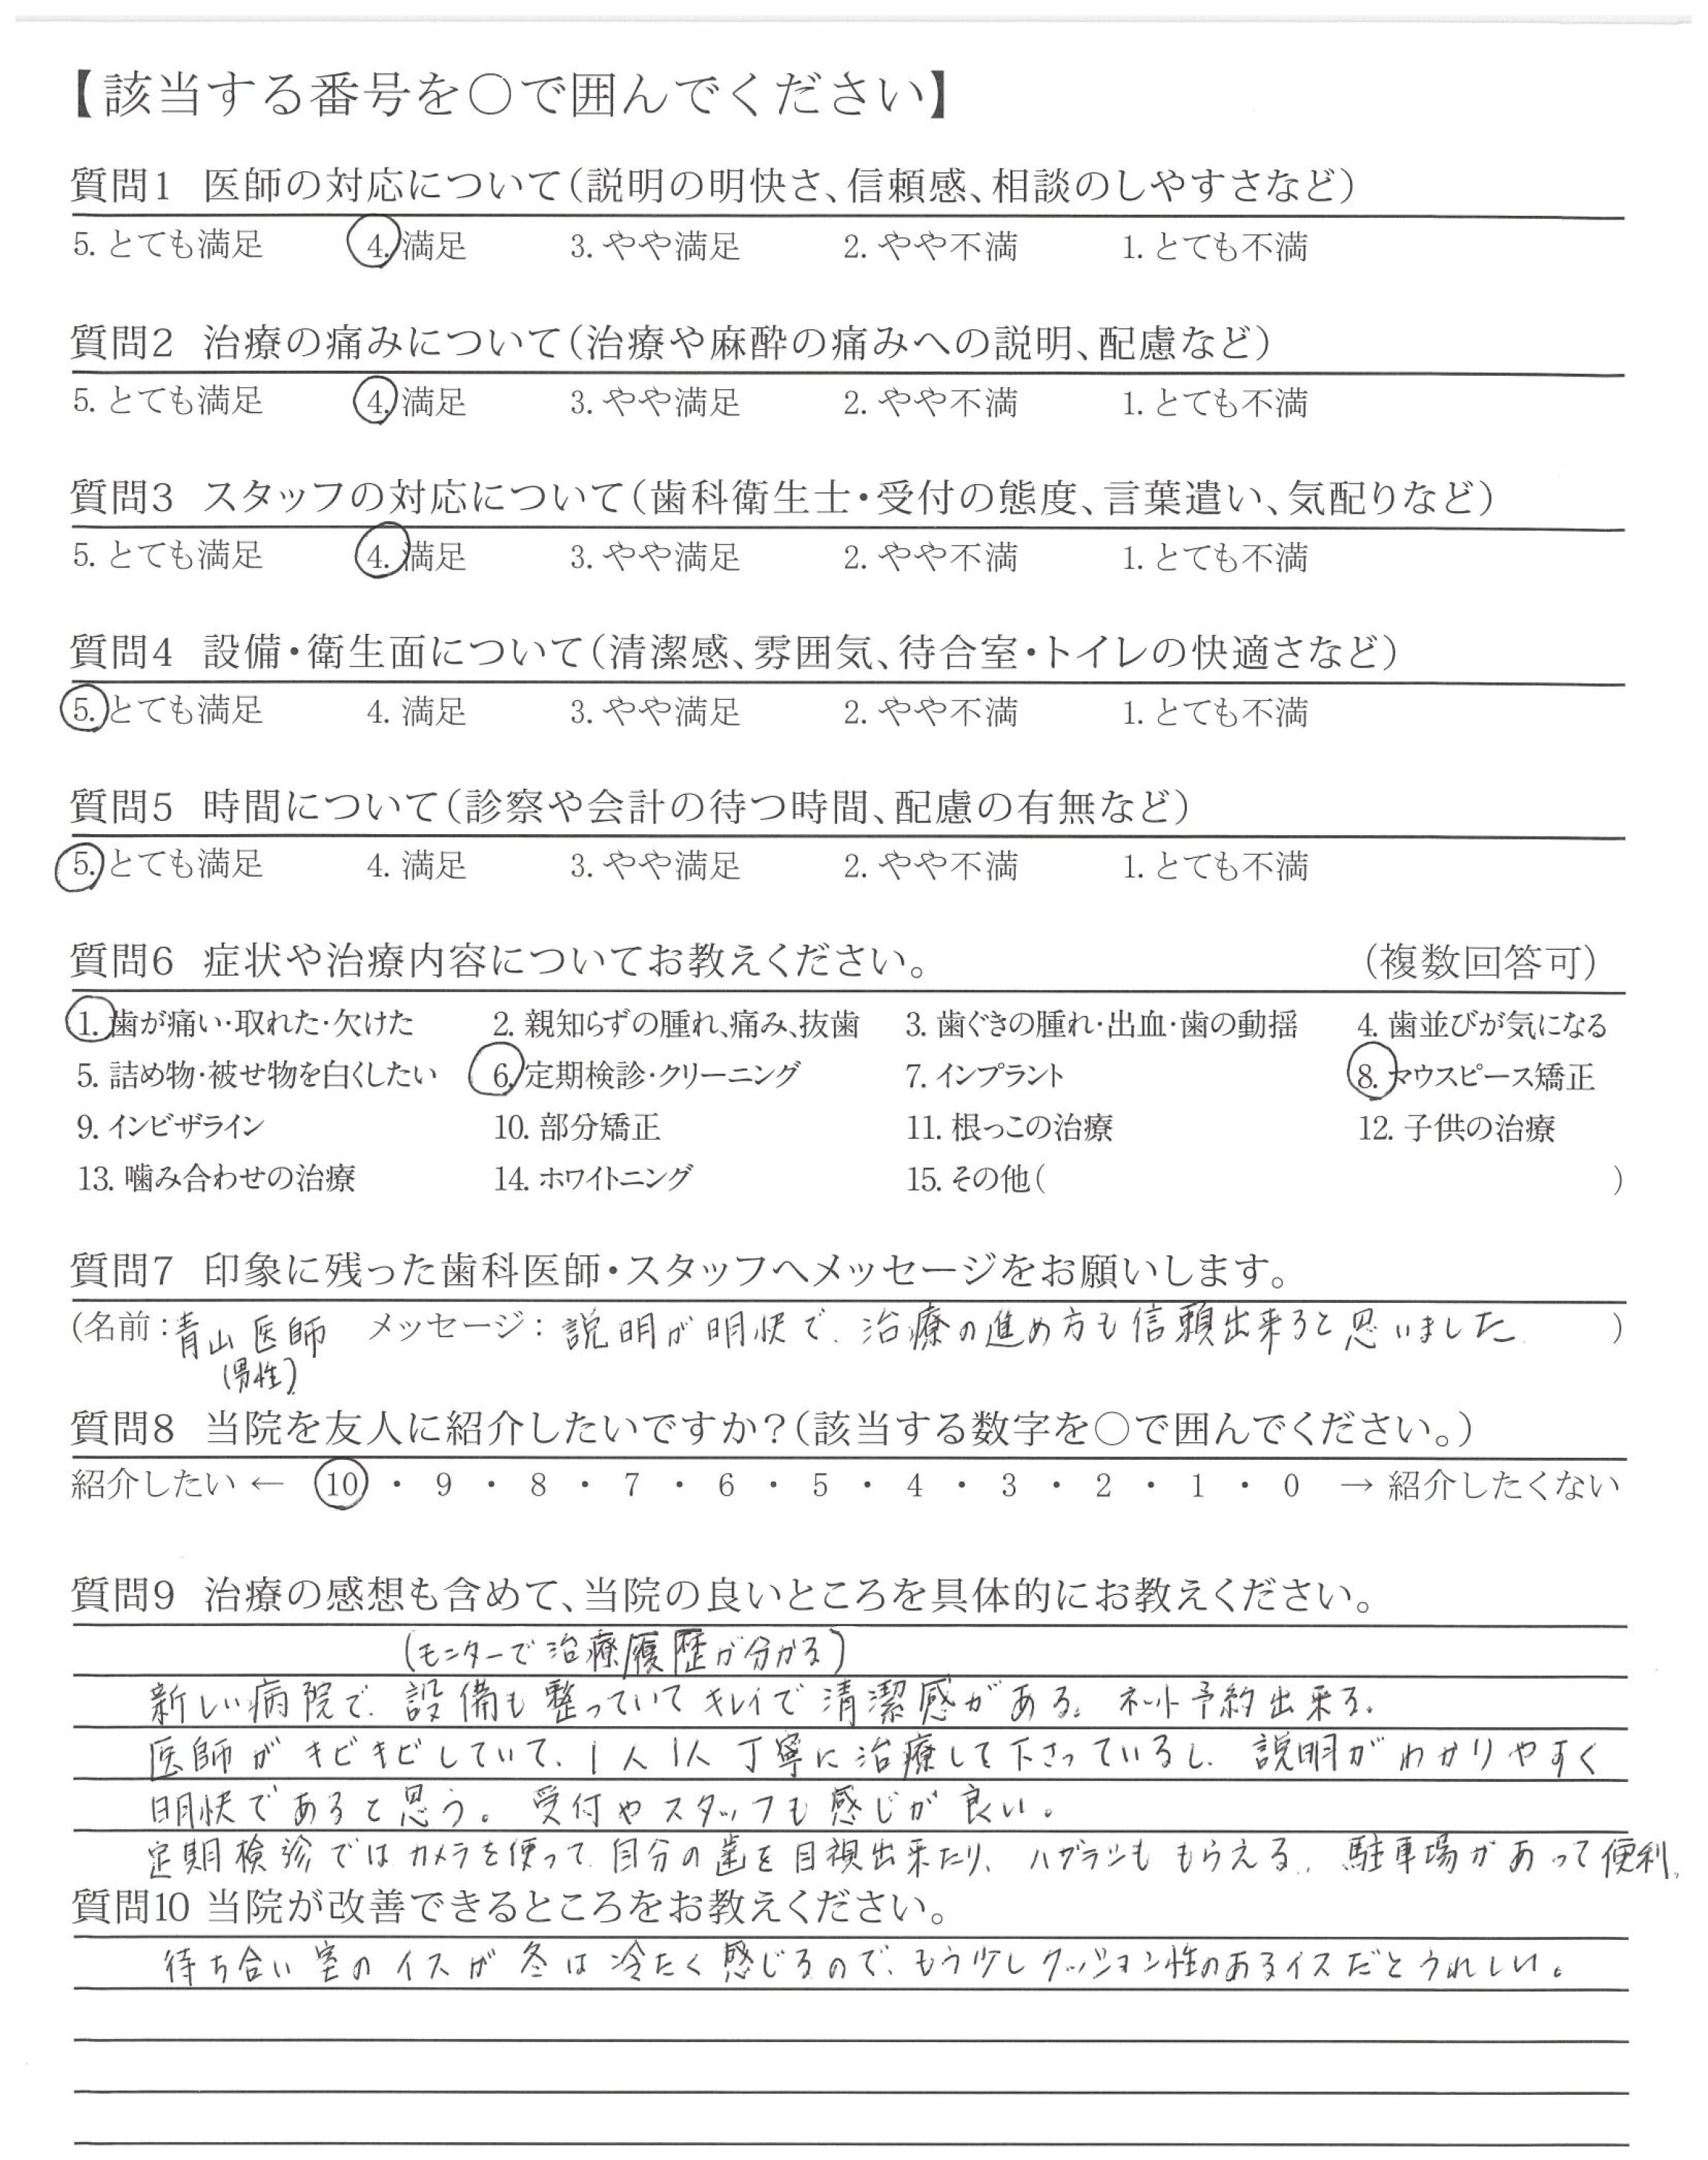 【該当する番号を○で囲んでください】
質問1 医師の対応について（説明の明快さ、信頼感、相談のしやすさなど）
5. とても満足 4. 満足 3. やや満足 2. やや不満 1. とても不満
質問2 治療の痛みについて（治療や麻酔の痛みへの説明、配慮など）
5. とても満足 4. 満足 3. やや満足 2. やや不満 1. とても不満
質問3 スタッフの対応について（歯科衛生士・受付の態度、言葉遣い、気配りなど）
5. とても満足 4. 満足 3. やや満足 2. やや不満 1. とても不満
質問4 設備・衛生面について（清潔感、雰囲気、待合室・トイレの快適さなど）
5. とても満足 4. 満足 3. やや満足 2. やや不満 1. とても不満
質問5 時間について（診察や会計の待つ時間、配慮の有無など）
5. とても満足 4. 満足 3. やや満足 2. やや不満 1. とても不満
質問6 症状や治療内容についてお教えください。 （複数回答可）
1. 歯が痛い・取れた・欠けた 2. 親知らずの腫れ、痛み、抜歯 3. 歯ぐきの腫れ・出血・歯の動揺 4. 歯並びが気になる
5. 詰め物・被せ物を白くしたい 6. 定期検診・クリーニング 7. インプラント 8. マウスピース矯正
9. インビザライン 10. 部分矯正 11. 根っこの治療 12. 子供の治療
13. 噛み合わせの治療 14. ホワイトニング 15. その他（ ）
質問7 印象に残った歯科医師・スタッフへメッセージをお願いします。
（名前：青山医師 メッセージ：説明が明快で、治療の進め方も信頼出来ると思いました ）
（男性）
質問8 当院を友人に紹介したいですか？（該当する数字を○で囲んでください。）
紹介したい ← 10 ・ 9 ・ 8 ・ 7 ・ 6 ・ 5 ・ 4 ・ 3 ・ 2 ・ 1 ・ 0 → 紹介したくない
質問9 治療の感想も含めて、当院の良いところを具体的にお教えください。
（モニターで治療履歴が分かる）
新しい病院で、設備も整っていてキレイで清潔感がある。ネット予約出来る。
医師がキビキビしていて、1人1人丁寧に治療して下さっているし、説明がわかりやすく
明快であると思う。受付やスタッフも感じが良い。
定期検診ではカメラを使って、自分の歯を目視出来たり、ハブラシももらえる。駐車場があって便利。
質問10 当院が改善できるところをお教えください。
待ち合い室のイスが冬は冷たく感じるので、もう少しクッション性のあるイスだとうれしい。